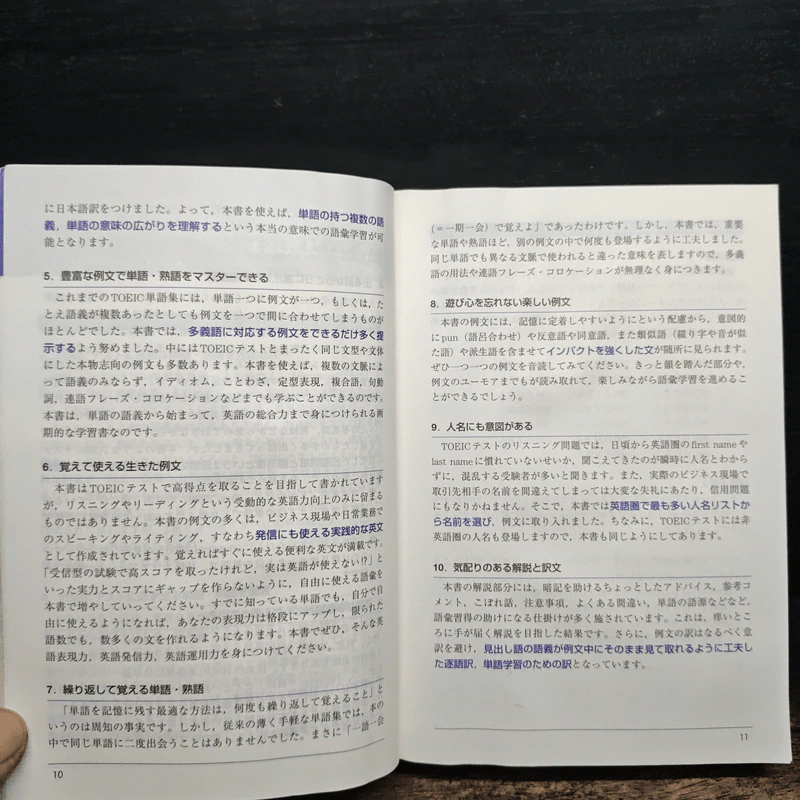 に日本語訳をつけました。よって，本書を使えば，単語の持つ複数の語
義，単語の意味の広がりを理解するという本当の意味での語彙学習が可
能となります。
5．豊富な例文で単語・熟語をマスターできる
これまでのTOEIC単語集には，単語一つに例文が一つ，もしくは，た
とえ語義が複数あったとしても例文を一つで間に合わせてしまうものが
ほとんどでした。本書では，多義語に対応する例文をできるだけ多く提
示するよう努めました。中にはTOEICテストとまったく同じ文型や文体
にした本物志向の例文も多数あります。本書を使えば，複数の文脈によ
って語義のみならず，イディオム，ことわざ，定型表現，複合語，句動
詞，連語フレーズ・コロケーションなどまでも学ぶことができるのです。
本書は，単語の語義から始まって，英語の総合力まで身につけられる画
期的な学習書なのです。
6．覚えて使える生きた例文
本書はTOEICテストで高得点を取ることを目指して書かれています
が，リスニングやリーディングという受動的な英語力向上のみに留まる
ものではありません。本書の例文の多くは，ビジネス現場や日常業務で
のスピーキングやライティング，すなわち発信にも使える実践的な英文
として作成されています。覚えればすぐに使える便利な英文が満載です。
「受信型の試験で高スコアを取ったけれど，実は英語が使えない!?」と
いった実力とスコアにギャップを作らないように，自由に使える語彙を
本書で増やしていってください。すでに知っている単語でも，自分で自
由に使えるようになれば，あなたの表現力は格段にアップし，限られた
語数でも，数多くの文を作れるようになります。本書でぜひ，そんな英
語表現力，英語発信力，英語運用力を身につけてください。
7．繰り返して覚える単語・熟語
「単語を記憶に残す最適な方法は，何度も繰り返して覚えること」と
いうのは周知の事実です。しかし，従来の薄く手軽な単語集では，本の
中で同じ単語に二度出会うことはありませんでした。まさに「一語一会
10
（＝一期一会）で覚えよ」であったわけです。しかし，本書では，重要
な単語や熟語ほど，別の例文の中で何度も登場するように工夫しました。
同じ単語でも異なる文脈で使われると違った意味を表しますので，多義
語の用法や連語フレーズ・コロケーションが無理なく身につきます。
8．遊び心を忘れない楽しい例文
本書の例文には，記憶に定着しやすいようにという配慮から，意図的
にpun（語呂合わせ）や反意語や同意語，また類似語（綴り字や音が似
た語）や派生語を含ませてインパクトを強くした文が随所に見られます。
ぜひ一つ一つの例文を音読してみてください。きっと韻を踏んだ部分や，
例文のユーモアまでもが読み取れて，楽しみながら語彙学習を進めるこ
とができるでしょう。
9．人名にも意図がある
TOEICテストのリスニング問題では，日頃から英語圏のfirst nameや
last nameに慣れていないせいか，聞こえてきたのが瞬時に人名とわから
ずに，混乱する受験者が多いと聞きます。また，実際のビジネス現場で
取引先相手の名前を間違えてしまっては大変な失礼にあたり，信用問題
にもなりかねません。そこで，本書では英語圏で最も多い人名リストか
ら名前を選び，例文に取り入れました。ちなみに，TOEICテストには非
英語圏の人名も登場しますので，本書も同じようにしてあります。
10．気配りのある解説と訳文
本書の解説部分には，暗記を助けるちょっとしたアドバイス，参考コ
メント，こぼれ話，注意事項，よくある間違い，単語の語源などなど，
語彙習得の助けになる仕掛けが多く施されています。これは，痒いとこ
ろに手が届く解説を目指した結果です。さらに，例文の訳はなるべく意
訳を避け，見出し語の語義が例文中にそのまま見て取れるように工夫し
た逐語訳，単語学習のための訳となっています。
11